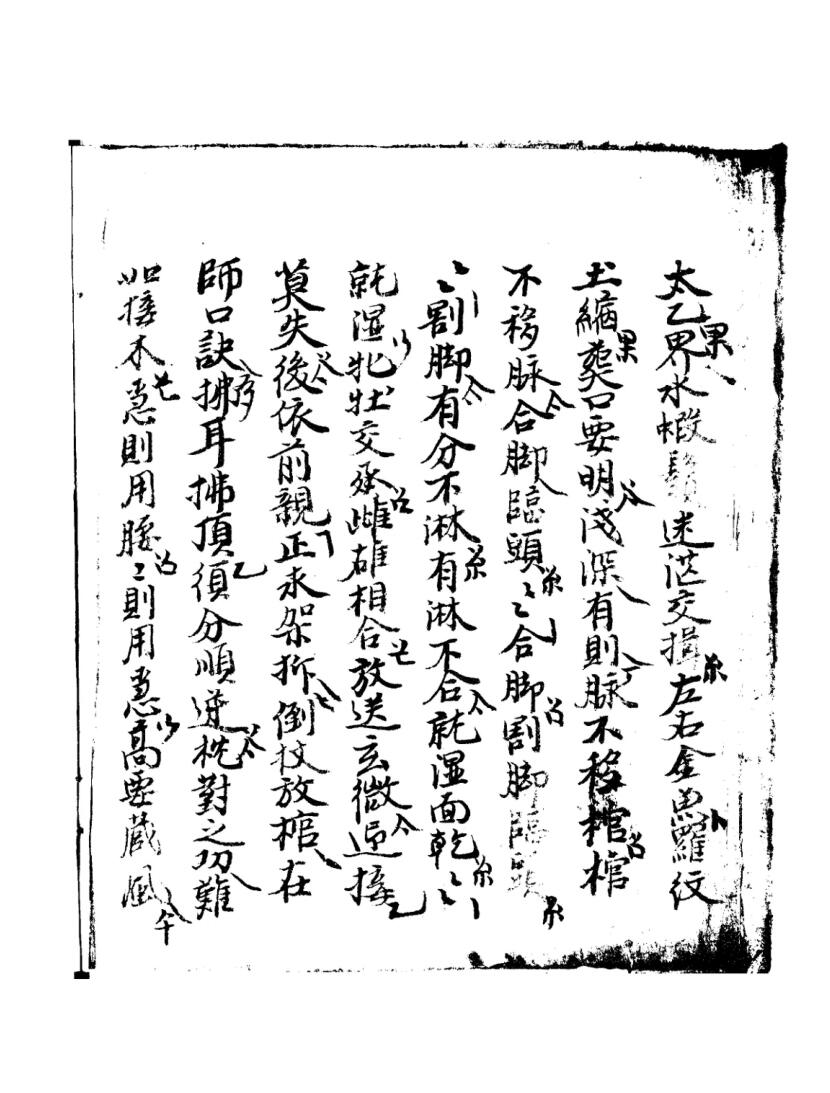 太乙界水蝦鬚迷茫交揖左右金魚羅紋
土縮葬口要明淺深有則脉不移棺棺
不移脉合脚臨頭〻〻合脚割脚臨頭
〻〻割脚有分不淋有淋不合就湿面乾〻〻
就湿牝牡交承雌雄相合放送玄微逆接
莫失後依前親正求架折倒杖放棺在
師口訣拂耳拂頂須分順逆枕對之功難
如接木急則用腰〻則用急高要藏風